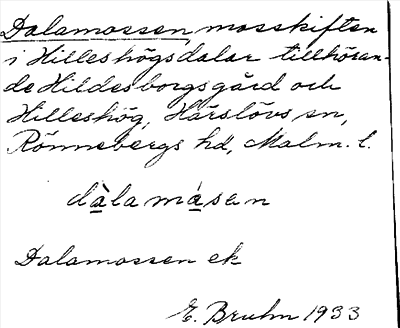 Dalamossen, mosskiften
i Hilleshögsdalar tillhöran-
de Hildesborgs gård och
Hilleshög, Härslövs sn,
Rönnebergs hd, Malm. l.
dàlamåsen
Dalamossen ek
E. Bruhn 1933